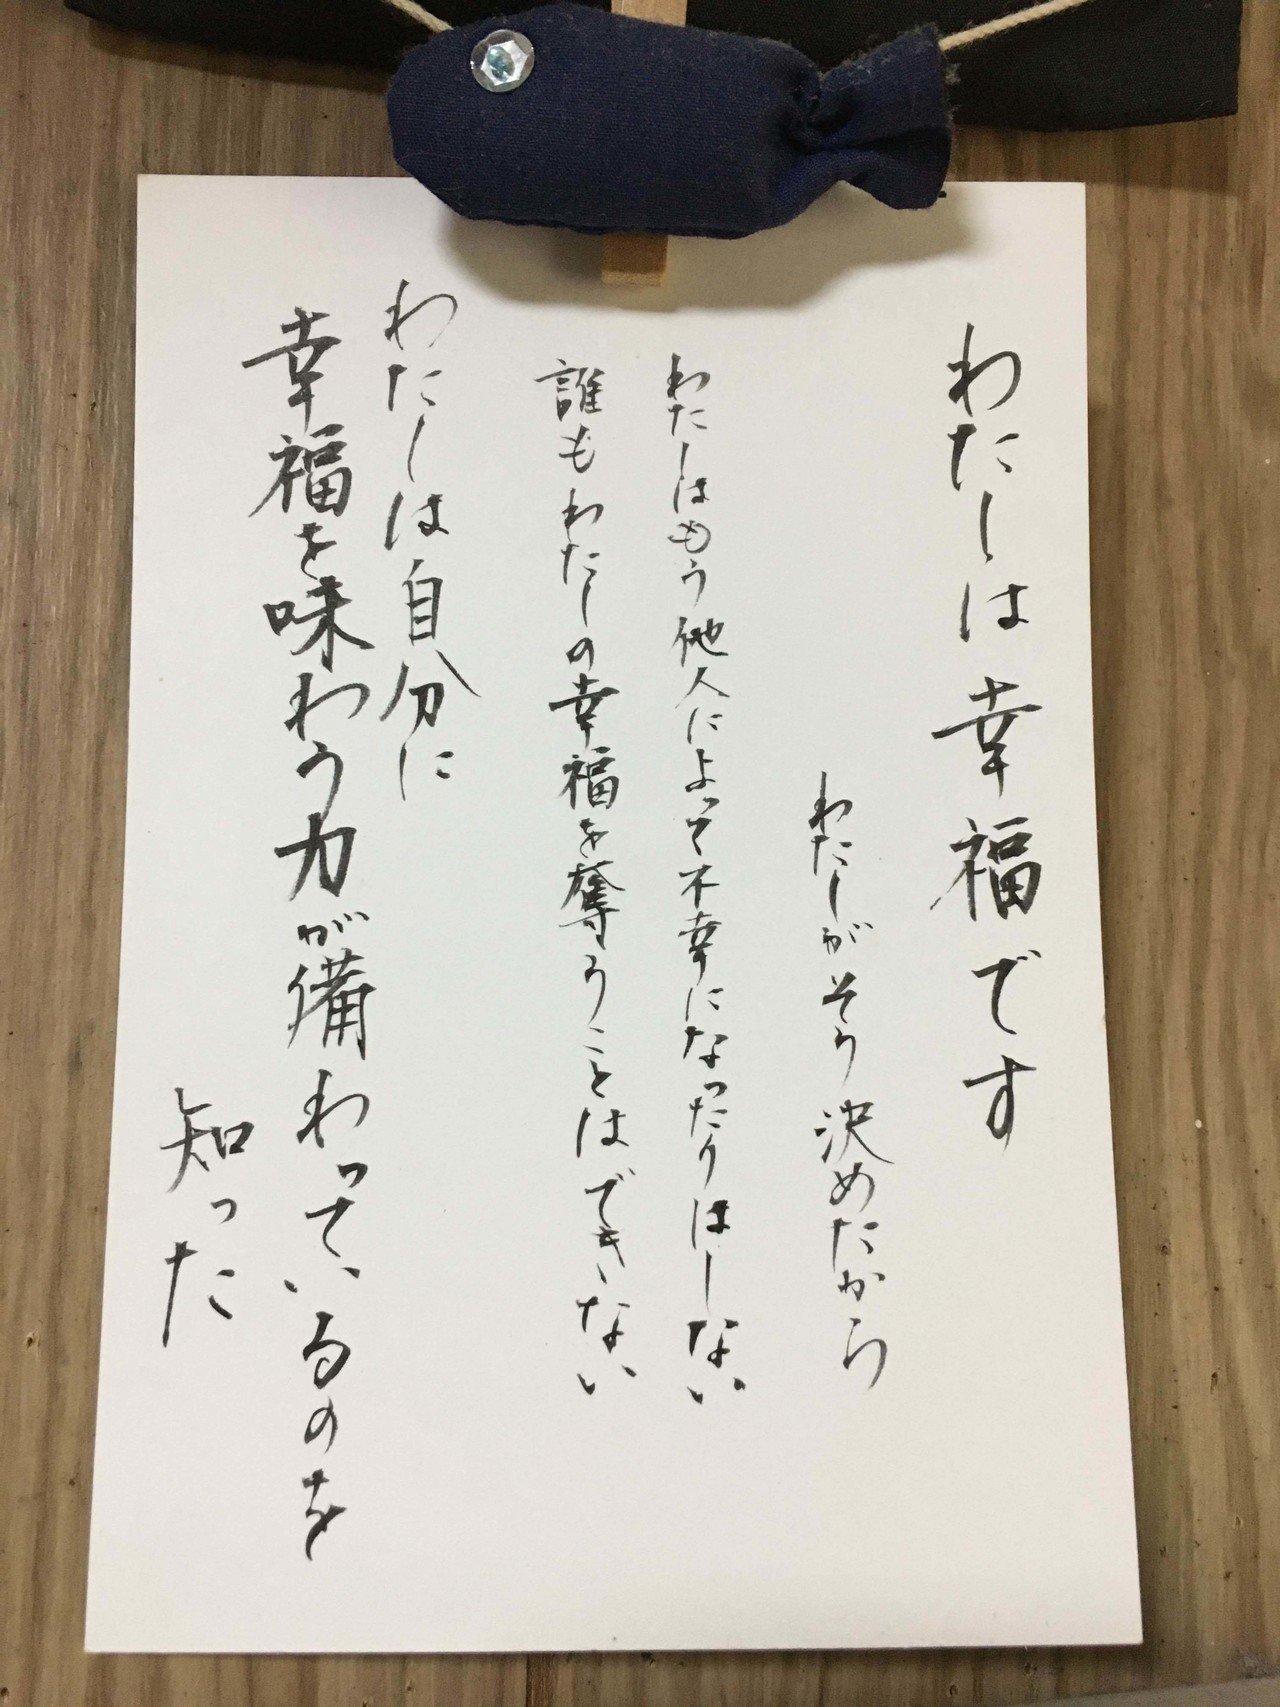 わたしは幸福です
わたしがそう決めたから
わたしはもう他人によって不幸になったりはしない
誰もわたしの幸福を奪うことはできない
わたしは自分に
幸福を味わう力が備わっているのを
知った